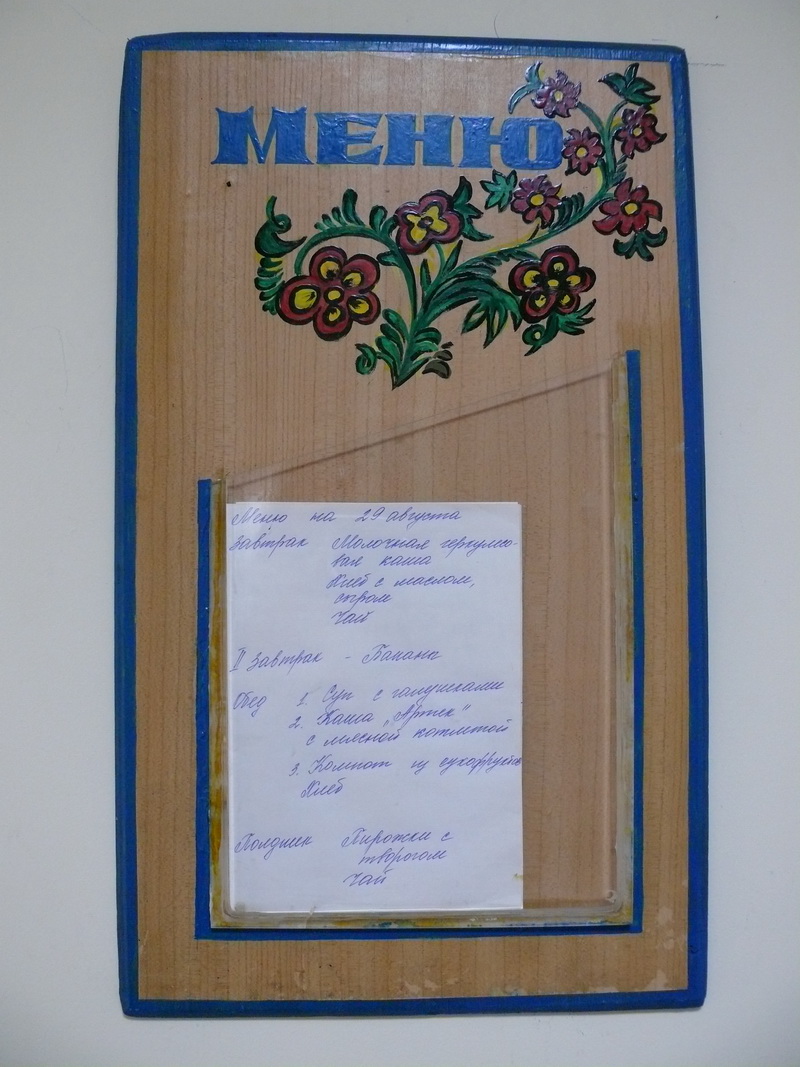 МЕНЮ
Меню на 29 августа
Завтрак Молочная геркулесо-
вая каша
Хлеб с маслом,
сыром
Чай
II Завтрак - Бананы
Обед 1. Суп с галушками
2. Каша „Артек"
с мясной котлетой
3. Компот из сухофруктов
Хлеб
Полдник Пирожки с
творогом
Чай